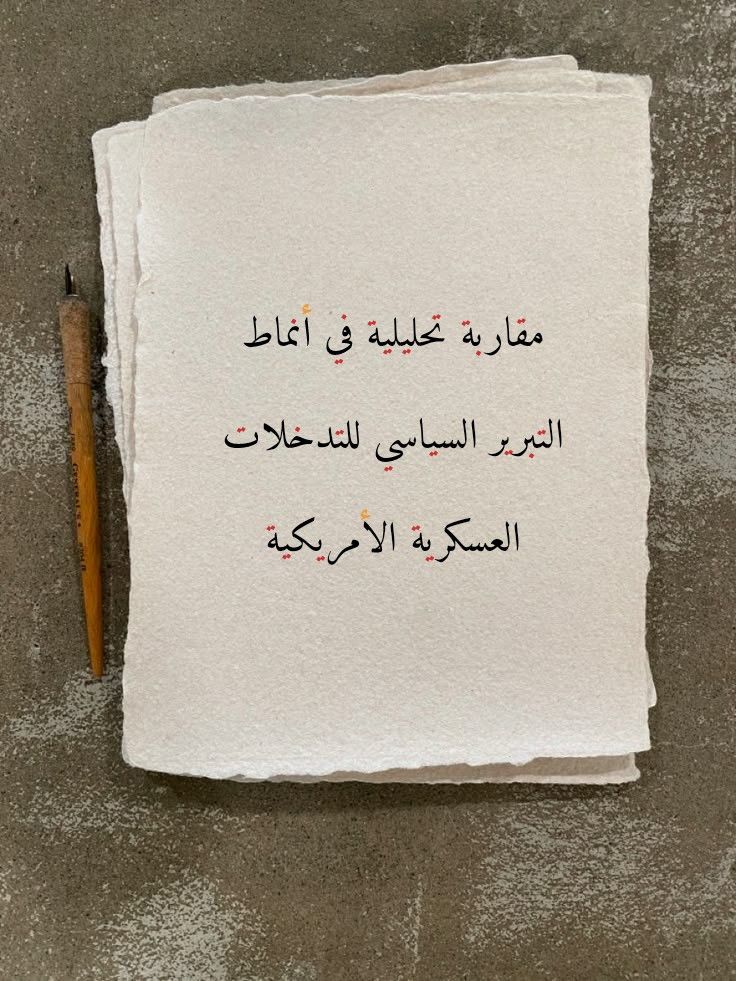 مقاربة تحليلية في أنماط
التبرير السياسي للتدخلات
العسكرية الأمريكية